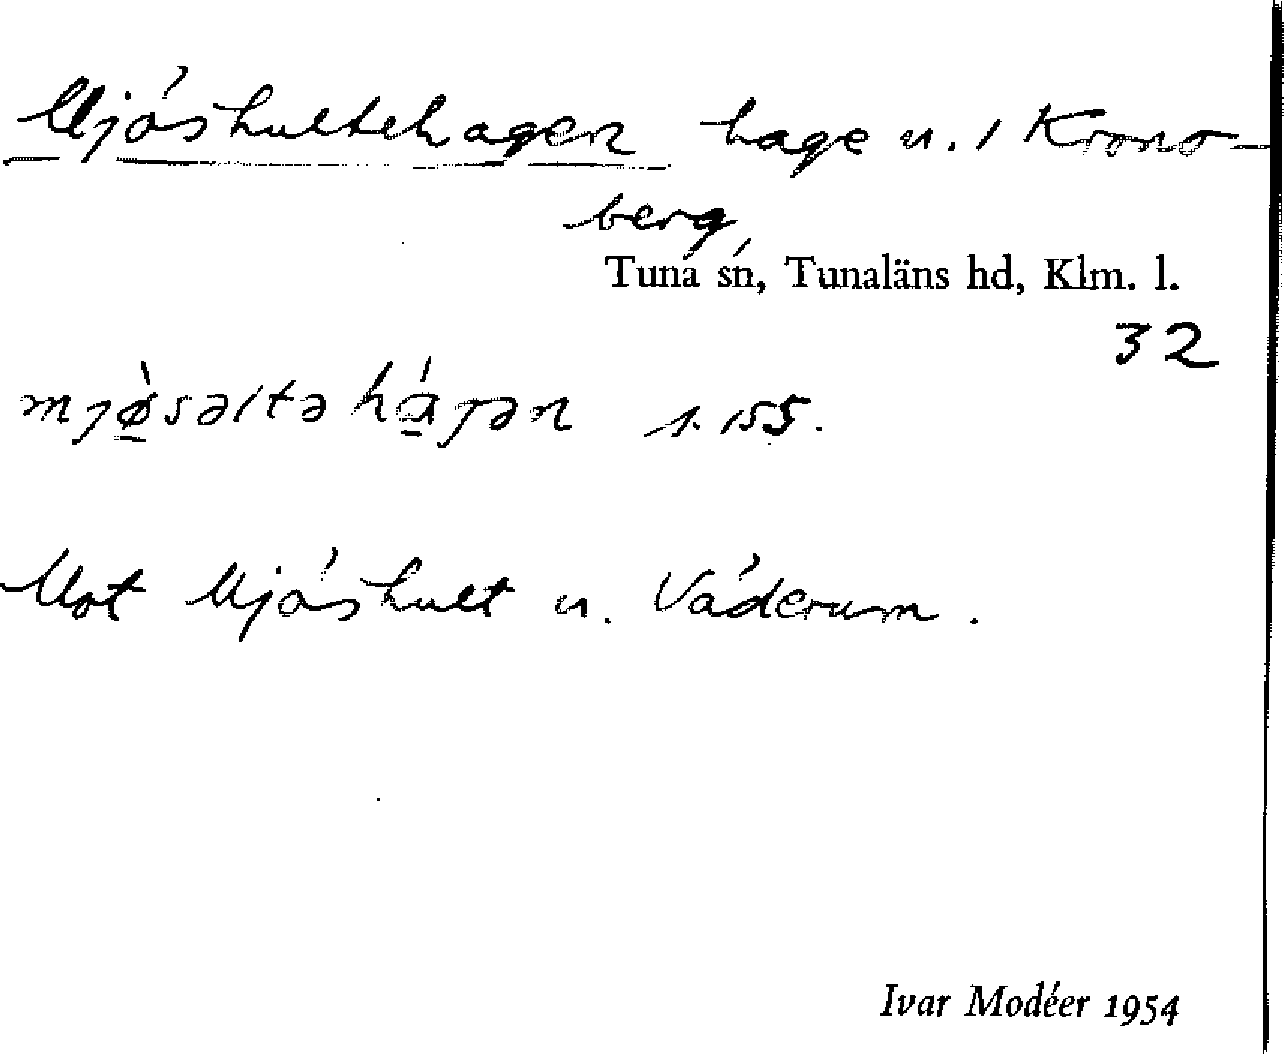 Mjöshultehagen hage u. 1 Krono-
berg
Tuna sn, Tunaläns hd, Klm. l.
32
mjø̀səltəhɑ́ɡən s. 155.
Mot Mjöshult u. Väderum.
Ivar Modéer 1954